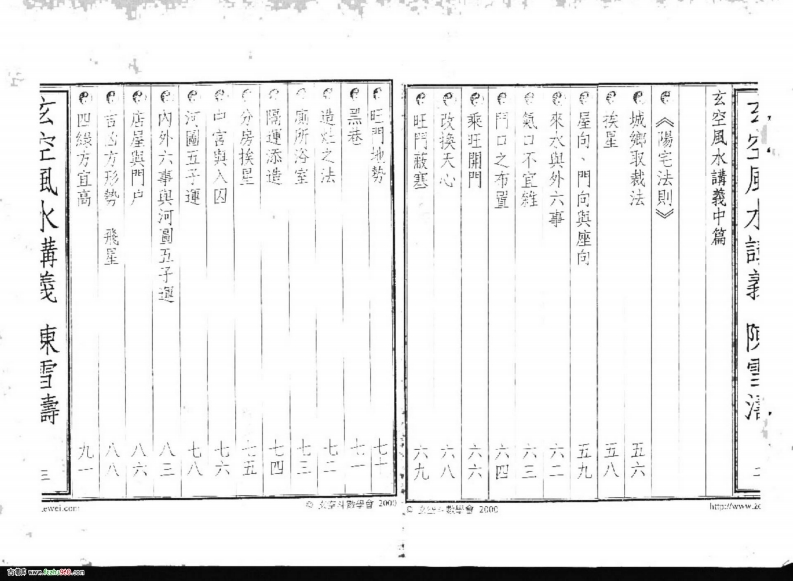 玄空風水講義 陳雪濤
二
玄空風水講義中篇
《陽宅法則》
城鄉取裁法 五六
挨星 五八
屋向、門向與座向 五九
來水與外六事 六二
氣口不宜雜 六三
門口之布置 六四
乘旺開門 六六
改換天心 六八
旺門蔽塞 六九
© 玄空斗數學會 2000
http://www.
旺門地勢 七十
黑巷 七一
造灶之法 七二
廁所浴室 七三
隔運添造 七四
分房挨星 七五
中宮與入囚 七六
河圖五子運 七八
內外六事與河圖五子運 八三
店屋與門戶 八六
吉凶方形勢 飛星 八八
四綠方宜高 九一
玄空風水講義 陳雪壽
三
ewei.com
© 玄空斗數學會 2000